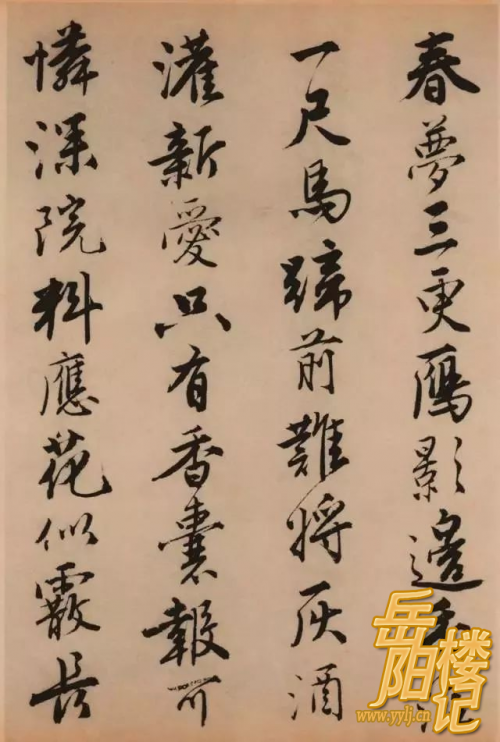 春夢三更鴈影邊香泥
一尺馬蹄前難將灰酒
灌新愛只有香囊報可
憐深院料應花似霰長
岳阳楼记
www.yylj.cn